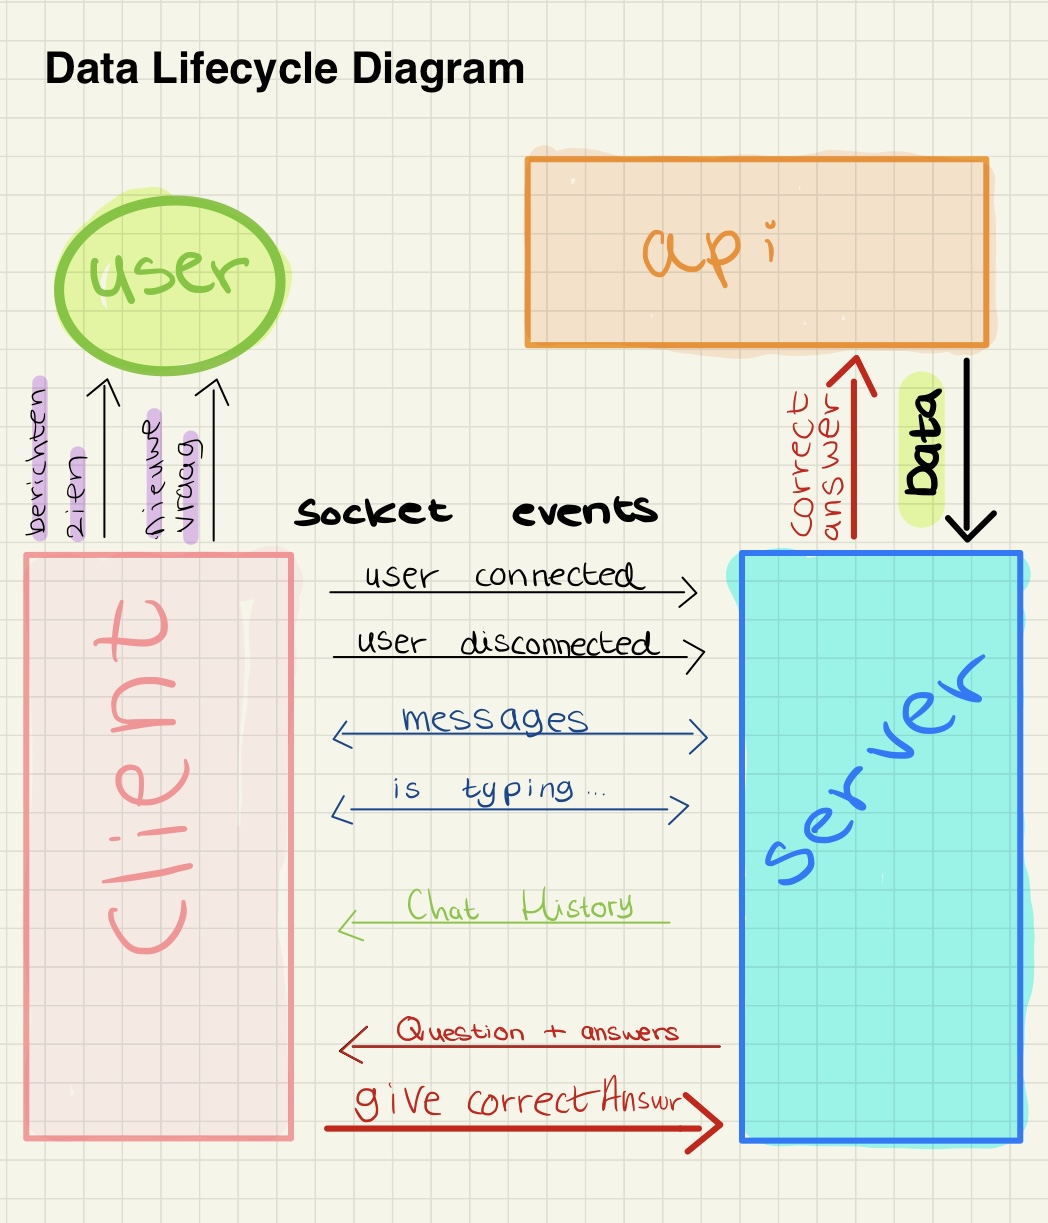 Data Lifecycle Diagram
user
api
berichten
zien
nieuwe
vraag
correct
answer
Data
socket events
user connected
user disconnected
messages
is typing...
Chat History
Question + answers
give correctAnswr
client
server